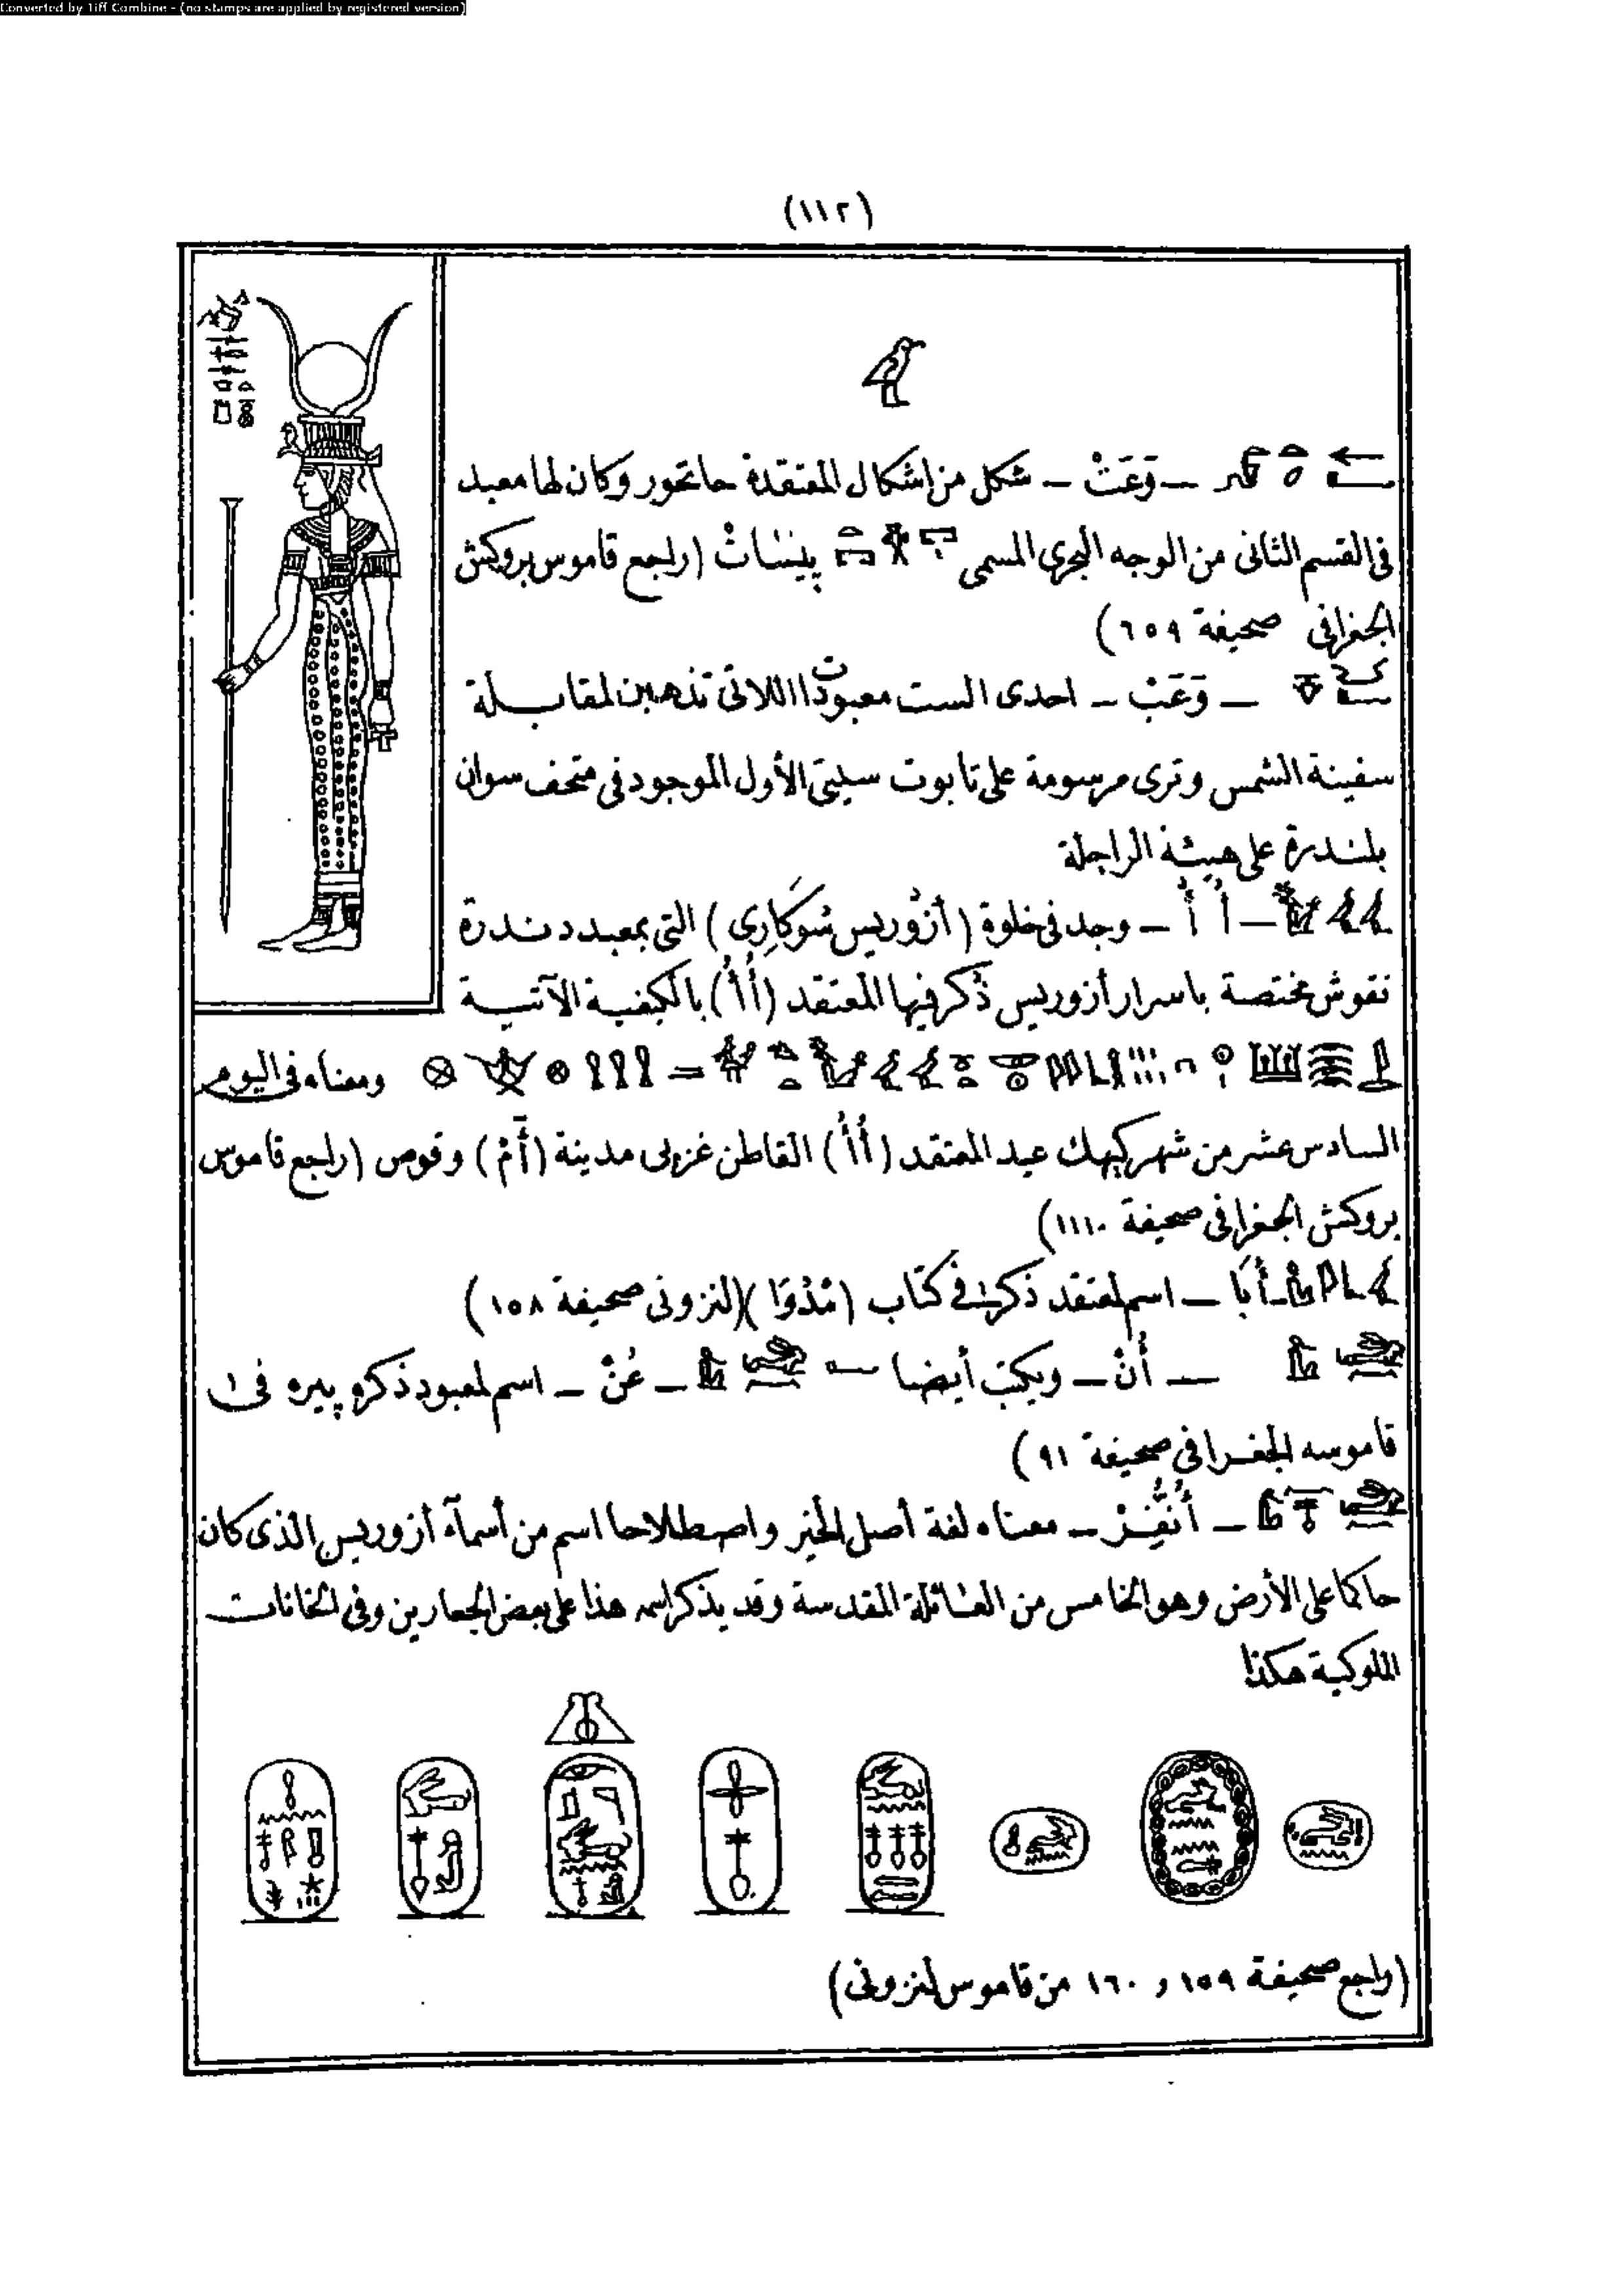 Converted by Tiff Combine - (no stamps are applied by registered version)
(١١٢)
— وَعَتْ — شكل من اشكال المعتقدة حاتحور وكان لها معبد
فى القسم الثانى من الوجه البحرى المسمى پنسَاتْ (راجع قاموس بروكش
الجغرافى صحيفة ٦٥٩)
— وَعَبْ — احدى الست معبودات اللاتى تذهبن لمقابلة
سفينة الشمس وترى مرسومة على تابوت سيتى الأول الموجود فى متحف سوان
بلندرة على هيئة الراجلة
— أُ أُ — وجد فى خلوة (أزُوريس سُوكَارِى) التى بمعبد دندرة
نقوش مختصة باسرار أزوريس ذُكر فيها المعتقد (أُأُ) بالكيفية الآتية
ومعناه فى اليوم
السادس عشر من شهر كيهك عيد المعتقد (أُأُ) القاطن غربى مدينة (أَمْ) وقوص (راجع قاموس
بروكش الجغرافى صحيفة ١١١٠)
— أُبَا — اسم لمعتقد ذكر فى كتاب (لنزونى صحيفة ١٥٨)
— أُنْ — ويكتب أيضا — عُنْ — اسم لمعبود ذكره پيره فى ١
قاموسه الجغرافى صحيفة ٩١)
— أُنُفِّرْ — معناه لغة أصل الخير واصطلاحا اسم من أسمآء أزوريس الذى كان
حاكما على الأرض وهو الخامس من العائلة المقدسة وقد يذكر اسمه هذا على بعض الجعارين وفى الخانات
الملوكية هكذا
(راجع صحيفة ١٥٩ و ١٦٠ من قاموس لنزونى)